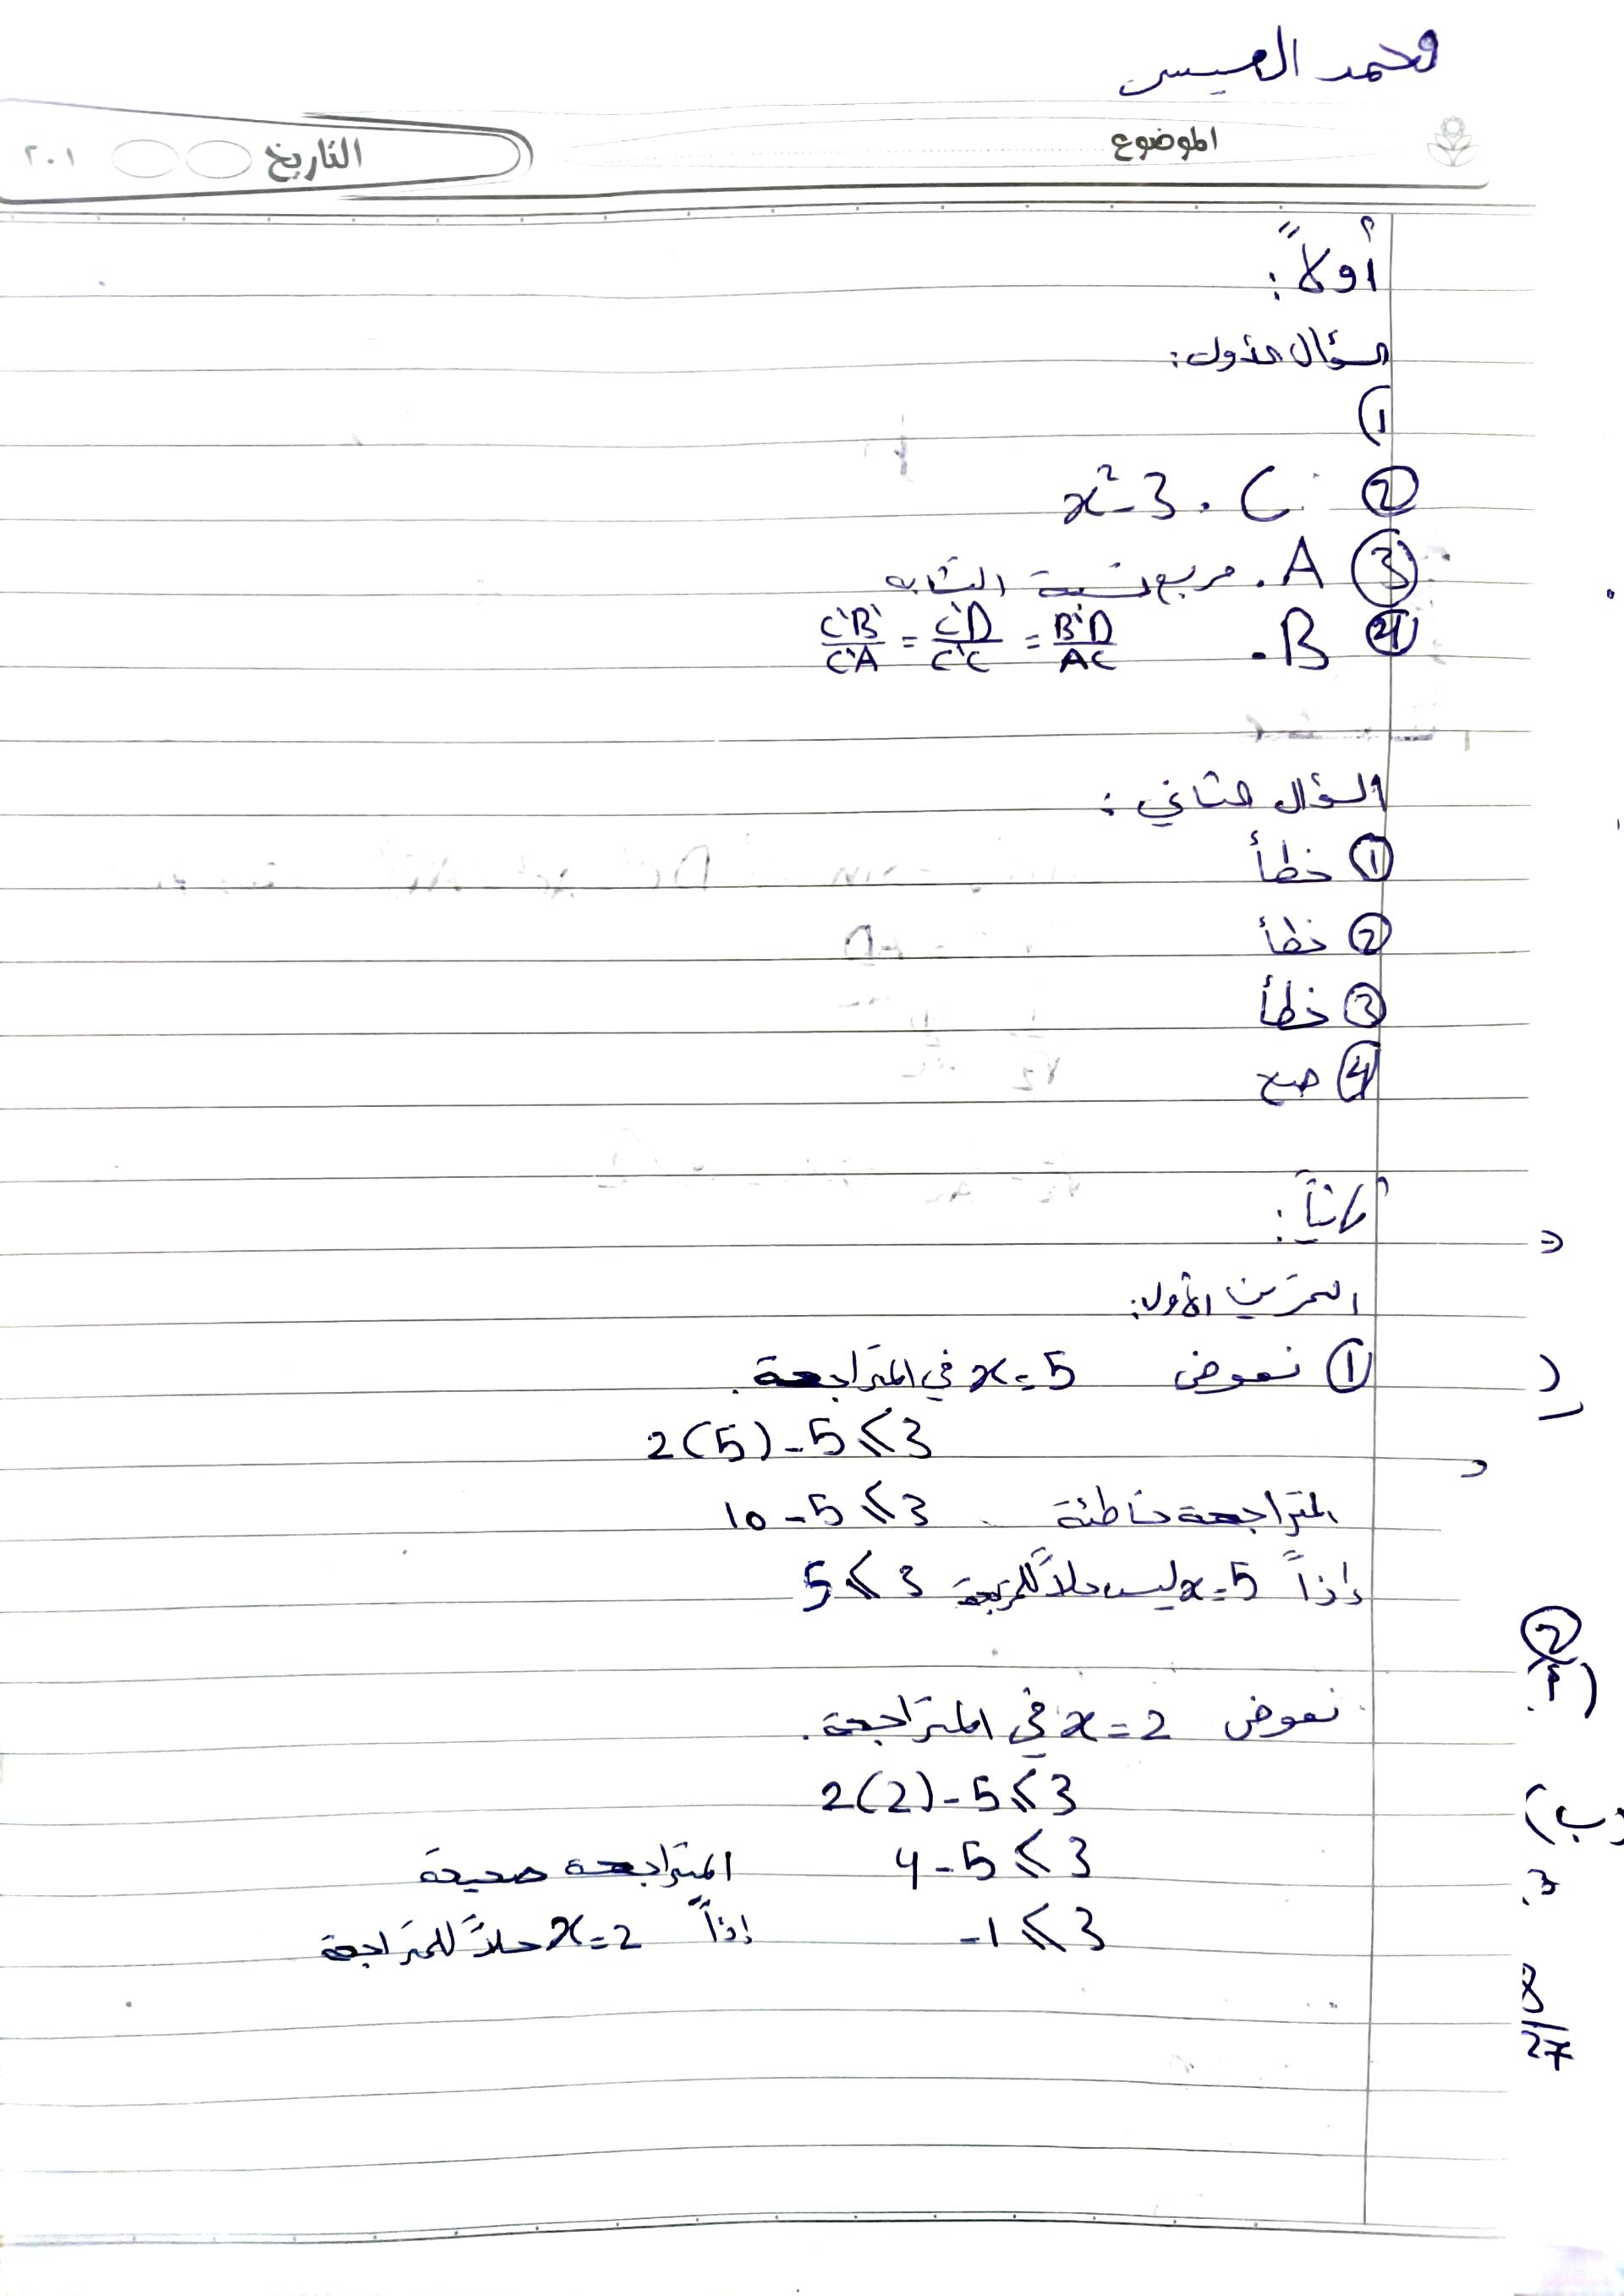 محمد العيسى
الموضوع
التاريخ ٢٠١
أولاً:
السؤال الأول:
1)
② C. x²-3
③ A. مربع نسبة التشابه
④ B. C'B'/C'A = C'D/C'C = B'D/AC
السؤال الثاني:
① خطأ
② خطأ
③ خطأ
④ صح
ثانياً:
التمرين الأول:
① نعوض x=5 في المتراجحة.
2(5)-5⩽3
10-5⩽3 المتراجحة خاطئة
5⩽3 إذاً x=5 ليس حلاً للمتراجحة
نعوض x=2 في المتراجحة.
2(2)-5⩽3
4-5⩽3 المتراجحة صحيحة
-1⩽3 إذاً x=2 حلاً للمتراجحة
②
ب)
8/27